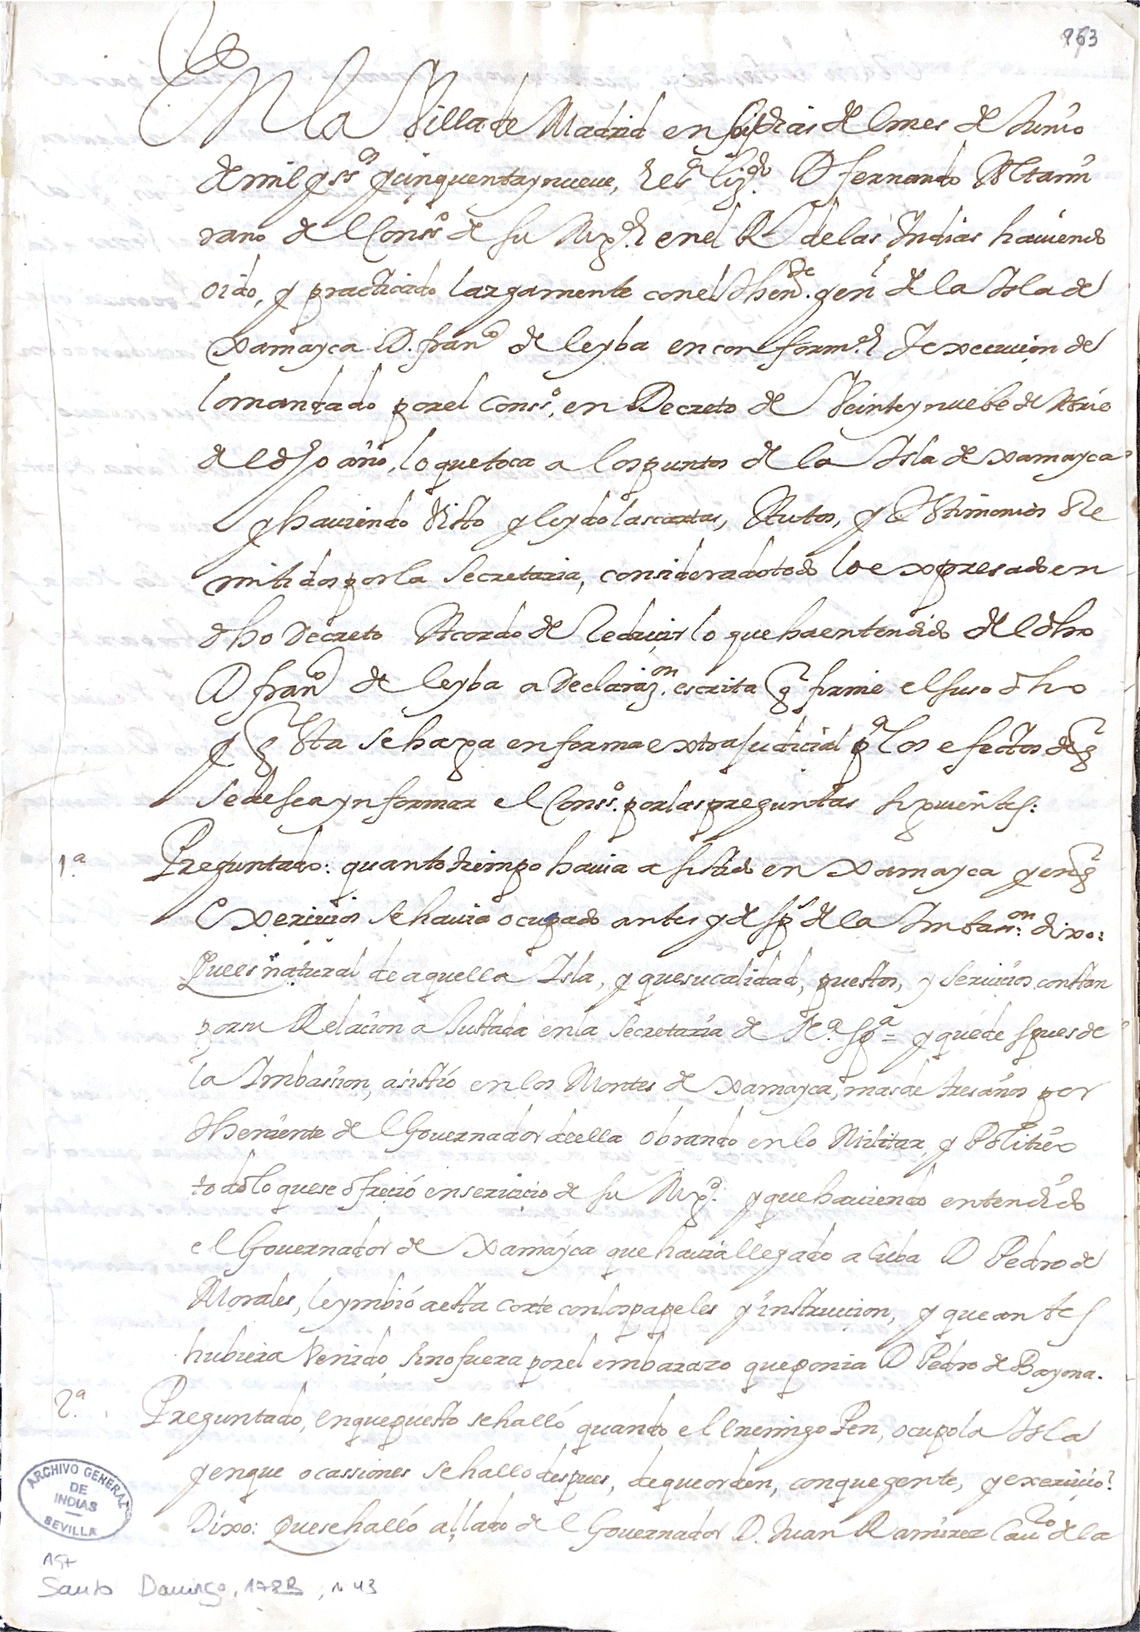 963
En la Villa de Madrid en seis dias del mes de Junio
de mil y ss.os y cinquenta y nueve, el s.r liz.do D fernando Altami
rano del Conss.o de su Mag.d en el R.l de las Indias haviendo
oido, y practicado largamente con el thenᵗᵉ. gen.l de la Isla de
Xamayca D. fran.co de leyba en conform.d y execucion de
lo mandado por el Conss.o, en Decreto de Veinte y nuebe de Abril
del dho año, lo que toca a los puntos de la Isla de xamayca
y haviendo visto y leydo las cartas, Autos, y testimonios Re
mitidos por la Secretaria, considerado todo lo expresado en
dho Decreto Acordo de Reducir lo que ha entendido del dho
D fran.co de leyba a Declaraz.on escrita q firme el suso dho
y q esta se haga en forma extrajudicial p.a los efectos de q
se desea ynformar el Conss.o por las preguntas siguientes:
1.a Preguntado: quanto tiempo havia asistido en xamayca y en q
exercicios se havia ocupado antes y desp.s de la Imbass.on dixo:
Que es natural de aquella Isla, y que su calidad, puestos, y servicios constan
por su Relacion ajustada en la Secretaria de N.a Sp.a = y que despues de
la Imbassion, asistio en los Montes de xamayca, mas de tres años por
theniente del Governador de ella obrando en lo Militar, y Politico
todo lo que se ofreció en servicio de su Mag.d y que haviendo entendido
el Governador de Xamayca que havia llegado a Cuba D Pedro de
Morales, le ymbió a esta corte con los papeles y instruccion, y que antes
hubiera Venido, si no fuera por el embarazo que ponia D Pedro de Bayona.
2.a Preguntado, en que puesto se halló quando el enemigo Pen, ocupo la Isla
y en que ocassiones se hallo despues, de que orden, con que gente, y exercicio?
Dixo: Que se halló al lado del Governador D. Juan Ramirez Cav.ro de la
ARCHIVO GENERAL
DE
INDIAS
SEVILLA
AGI
Santo Domingo, 178B, N 43